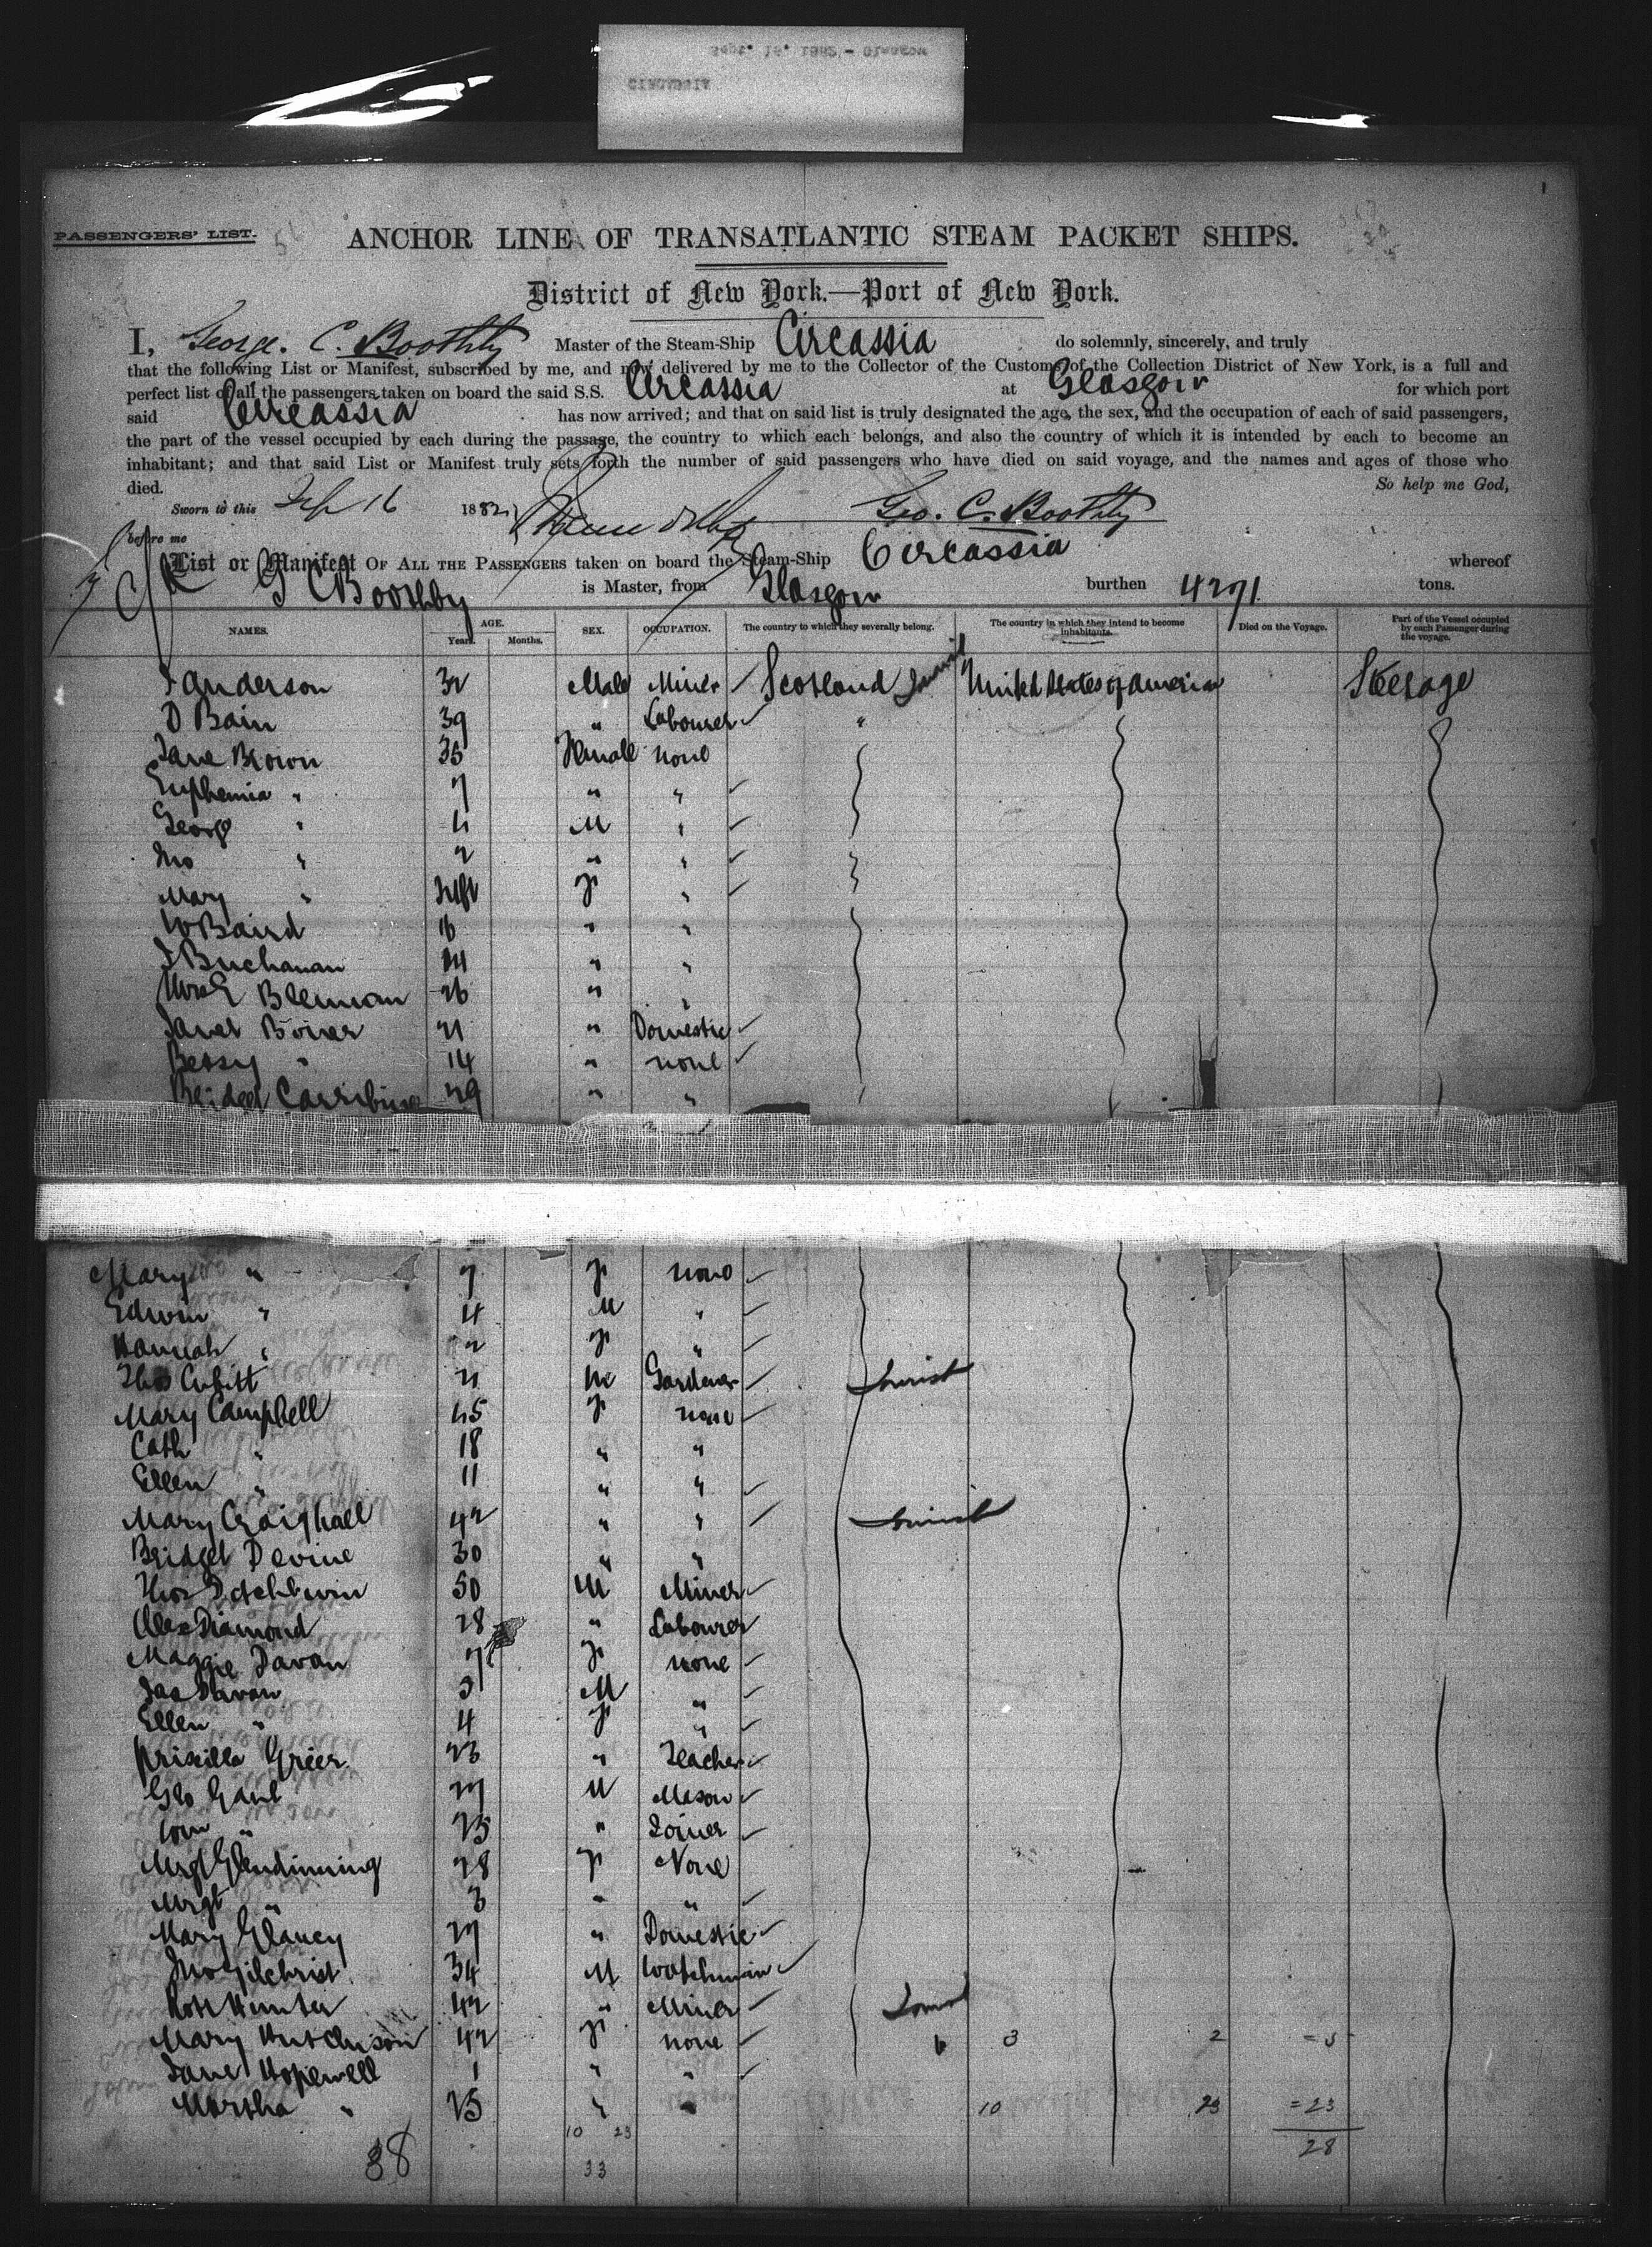 Sept. 16. 1882 - Glasgow
CIRCASSIA
PASSENGERS' LIST.
ANCHOR LINE OF TRANSATLANTIC STEAM PACKET SHIPS.
District of New York.—Port of New York.
I, George. C. Boothby Master of the Steam-Ship Circassia do solemnly, sincerely, and truly
that the following List or Manifest, subscribed by me, and now delivered by me to the Collector of the Customs of the Collection District of New York, is a full and
perfect list of all the passengers taken on board the said S.S. Circassia at Glasgow for which port
said Circassia has now arrived; and that on said list is truly designated the age, the sex, and the occupation of each of said passengers,
the part of the vessel occupied by each during the passage, the country to which each belongs, and also the country of which it is intended by each to become an
inhabitant; and that said List or Manifest truly sets forth the number of said passengers who have died on said voyage, and the names and ages of those who
died. So help me God,
Sworn to this Sep 16 1882 Geo. C. Boothby
before me
List or Manifest OF ALL THE PASSENGERS taken on board the Steam-Ship Circassia whereof
G C Boothby is Master, from Glasgow burthen 4271 tons.
NAMES. AGE. Years. Months. SEX. OCCUPATION. The country to which they severally belong. The country in which they intend to become inhabitants. Died on the Voyage. Part of the Vessel occupied by each Passenger during the voyage.
J Anderson 32 Male Miner Scotland United States of America Steerage
D Bain 39 " Labourer "
Jane Brown 35 Female none
Euphemia " 7 " "
George " 4 M "
Jno " 2 " "
Mary " Inft F "
W Baird 16 " "
J Buchanan 14 " "
Mrs E Blennan 26 " "
Janet Boner 21 " Domestic
Bessy " 14 " none
Bridget 29 " "
Mary " 7 F none
Edwin " 4 M "
Hannah " 2 F "
Thos Cubitt 21 M Gardener Tourist
Mary Campbell 45 F none
Cath " 18 " "
Ellen " 11 " "
Mary Craighall 42 " " Tourist
Bridget Devine 30 " "
Thos 50 M Miner
Alex Diamond 28 " Labourer
Maggie Davan 7 F none
Jas Davan 5 M "
Ellen " 4 F "
Priscilla Grier 23 " Teacher
Geo Gaul 27 M Mason
Wm " 25 " Joiner
Mrgt Glendinning 28 F None
Mrgt " 3 " "
Mary Glancy 27 " Domestic
Jno Gilchrist 34 M Watchman
Robt Hunter 42 " Miner Tourist
Mary Hutchison 42 F none 6 3 2 = 5
Jane Hopewell 1 " "
Martha " 25 " " 10 23 = 23
10 23 28
38 33